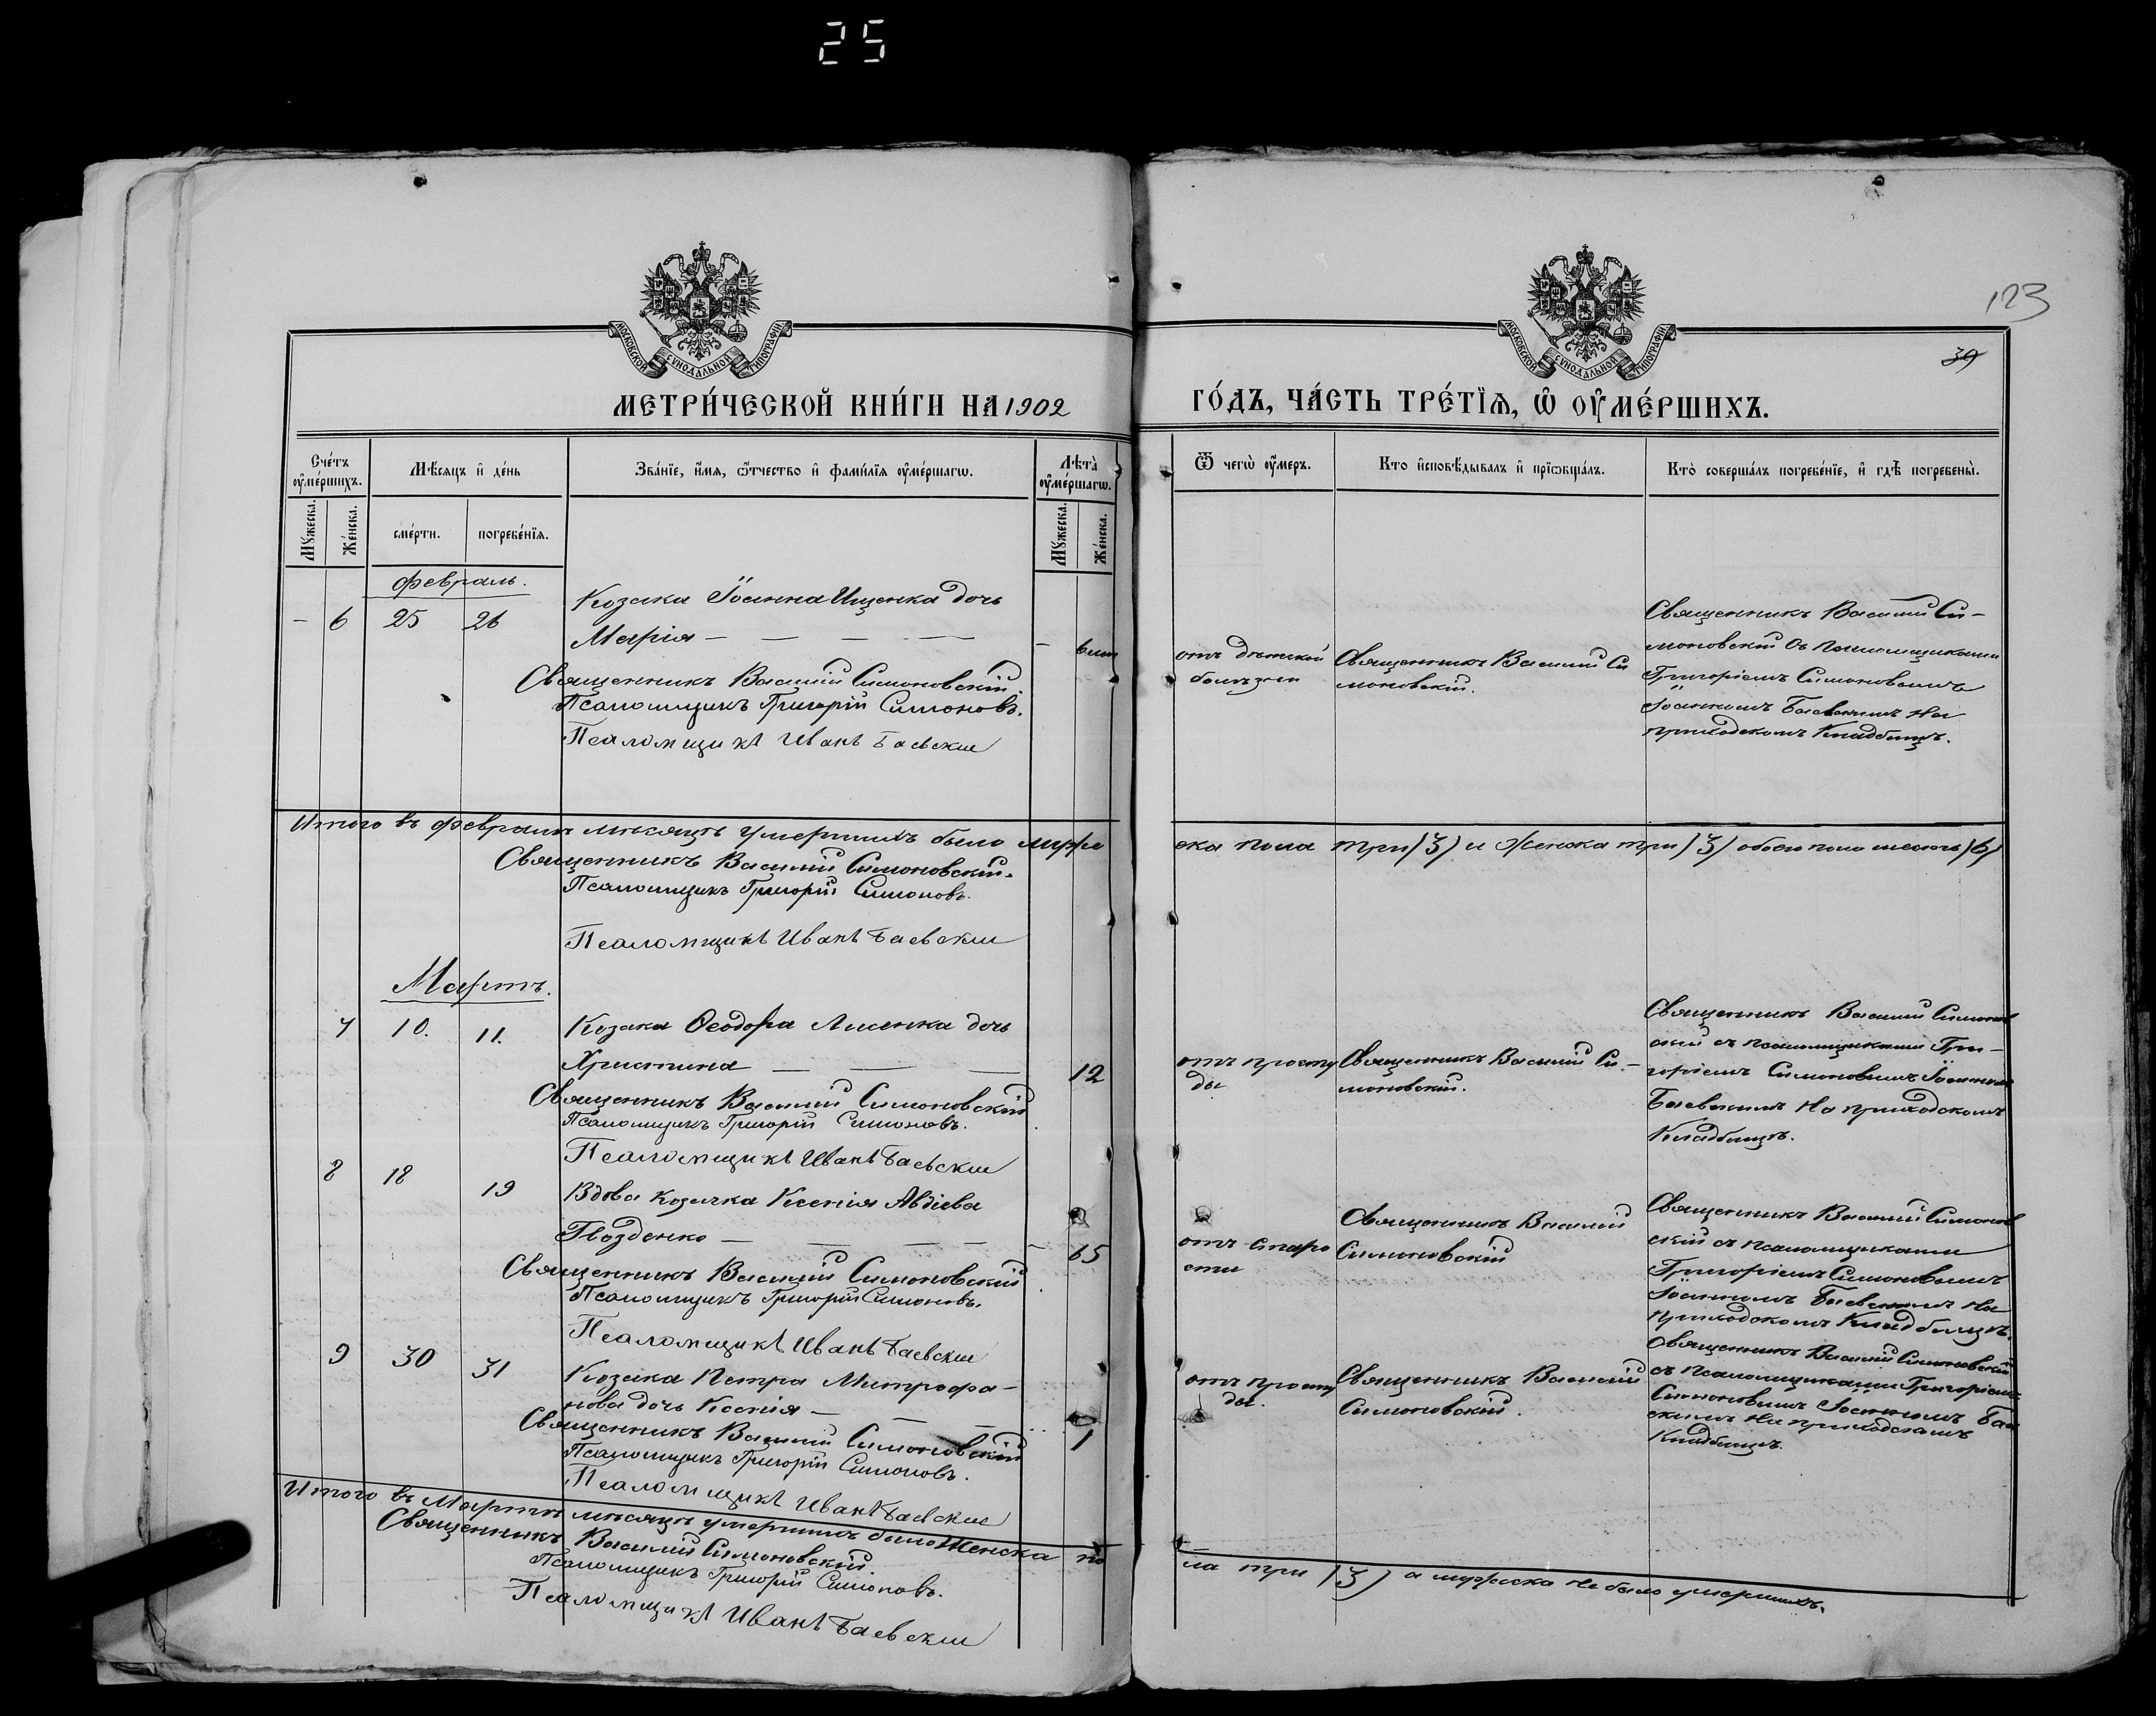 25
123
39
МОСКОВСКОЙ СУНОДАЛЬНОЙ ТИПОГРАФІИ
МОСКОВСКОЙ СУНОДАЛЬНОЙ ТИПОГРАФІИ
МЕТРИ́ЧЕСКОЙ КНИ́ГИ НА 1902 ГО́ДЪ, ЧА́СТЬ ТРЕ́ТЇѦ, Ѡ ОУ҆МЕ́РШИХЪ.
Сче́тъ оу҆ме́ршихъ.
Мѣ́сяцъ и҆ де́нь
Зва́нїе, и҆́мѧ, ѻ҆́тчество и҆ фами́лїѧ оу҆ме́ршагѡ.
Лѣта̀ оу҆ме́ршагѡ.
Ѿ чегѡ̀ оу҆́меръ.
Кто̀ и҆сповѣ́дывалъ и҆ прїѡбща́лъ.
Кто̀ соверша́лъ погребе́нїе, и҆ гдѣ̀ погребены̀.
Мꙋ́жеска. Же́нска.
сме́рти. погребе́нїѧ.
Мꙋ́жеска. Же́нска.
Февраль.
– 6 25 26 Козака Іоанна Ищенка дочь
Марія – – – – – 6 мѣс
Священникъ Василій Симоновскій.
Псаломщикъ Григорій Симоновъ.
Псаломщикъ Иванъ Баевскій
отъ дѣтской
болѣзни
Священникъ Василій Си
моновскій.
Священникъ Василій Си–
моновскій съ псаломщиками
Григоріемъ Симоновымъ
Іоанномъ Баевскимъ на
приходскомъ кладбищѣ.
Итого въ Февралѣ мѣсяцѣ умершихъ было муже ска пола три (3) и женска три (3) обоего пола шесть (6)
Священникъ Василій Симоновскій.
Псаломщикъ Григорій Симоновъ.
Псаломщикъ Иванъ Баевскій
Мартъ.
7 10. 11. Козака Ѳеодора Лисенка дочь
Христина – – – 12
Священникъ Василій Симоновскій
Псаломщикъ Григорій Симоновъ.
Псаломщикъ Иванъ Баевскій
отъ просту
ды
Священникъ Василій Си–
моновскій.
Священникъ Василій Симонов
скій съ псаломщиками Гри–
горіемъ Симоновымъ Іоанномъ
Баевскимъ на приходскомъ
кладбищѣ.
8 18 19 Вдова козачка Ксенія Авдіева
Гвозденко – – – – – 65
Священникъ Василій Симоновскій
Псаломщикъ Григорій Симоновъ.
Псаломщикъ Иванъ Баевскій
отъ старо
сти
Священникъ Василій
Симоновскій
Священникъ Василій Симонов
скій съ псаломщиками
Григоріемъ Симоновымъ
Іоанномъ Баевскимъ на
приходскомъ кладбищѣ.
9 30 31 Козака Петра Митрофа–
нова дочь Ксенія – – – 1
Священникъ Василій Симоновскій
Псаломщикъ Григорій Симоновъ.
Псаломщикъ Иванъ Баевскій
отъ просту
ды.
Священникъ Василій
Симоновскій.
Священникъ Василій Симоновскій
съ псаломщиками Григоріемъ
Симоновымъ Іоанномъ Бае
скимъ на приходскомъ
кладбищѣ.
Итого въ Мартѣ мѣсяцѣ умершихъ было женска по ла три (3) а мужска не было умершихъ.
Священникъ Василій Симоновскій
Псаломщикъ Григорій Симоновъ.
Псаломщикъ Иванъ Баевскій